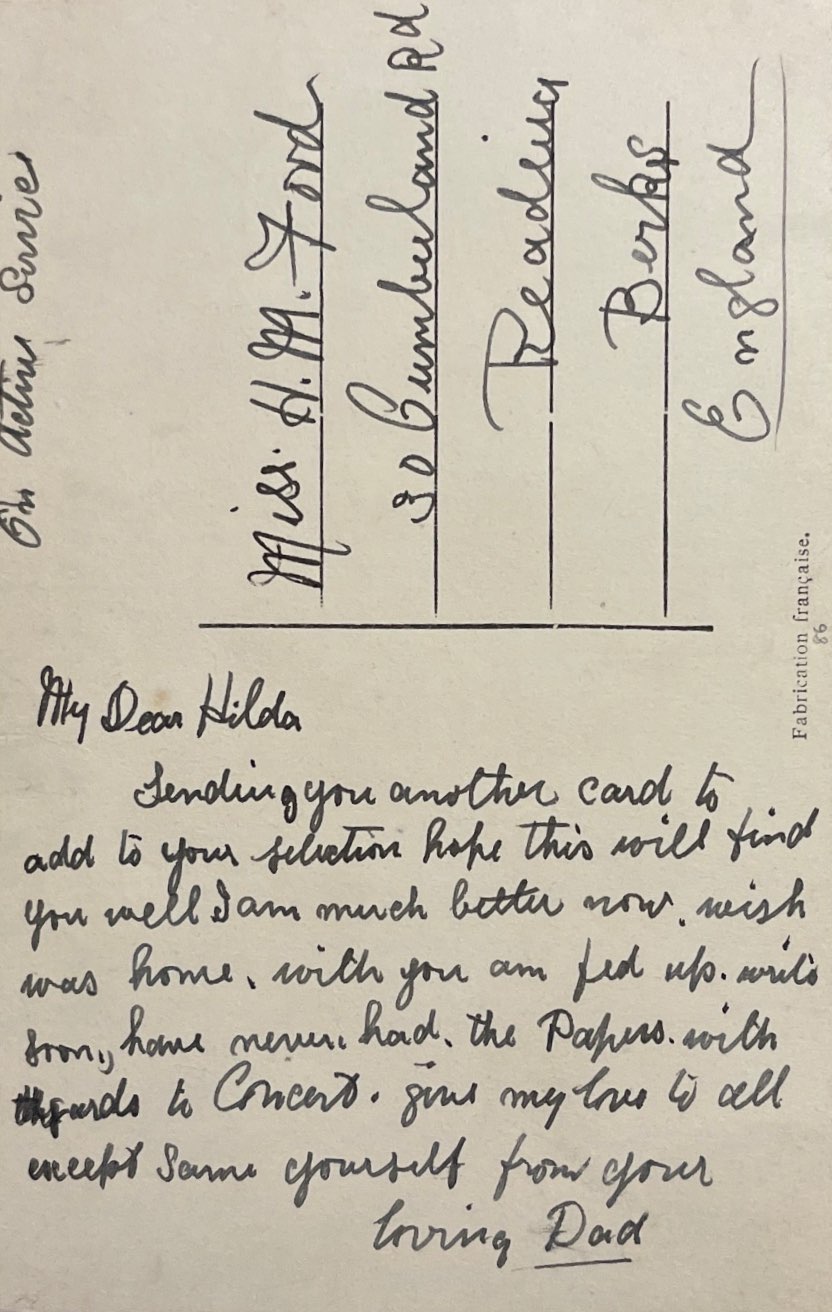 On Active Service
Miss. H. M. Ford
30 Cumberland Rd
Reading
Berks
England
Fabrication française.
86
My Dear Hilda
Sending you another card to
add to your selection hope this will find
you well I am much better now. wish
was home. with you am fed up. write
soon, have never. had. the Papers. with
regards to Concert. give my love to all
except Same yourself from your
loving Dad